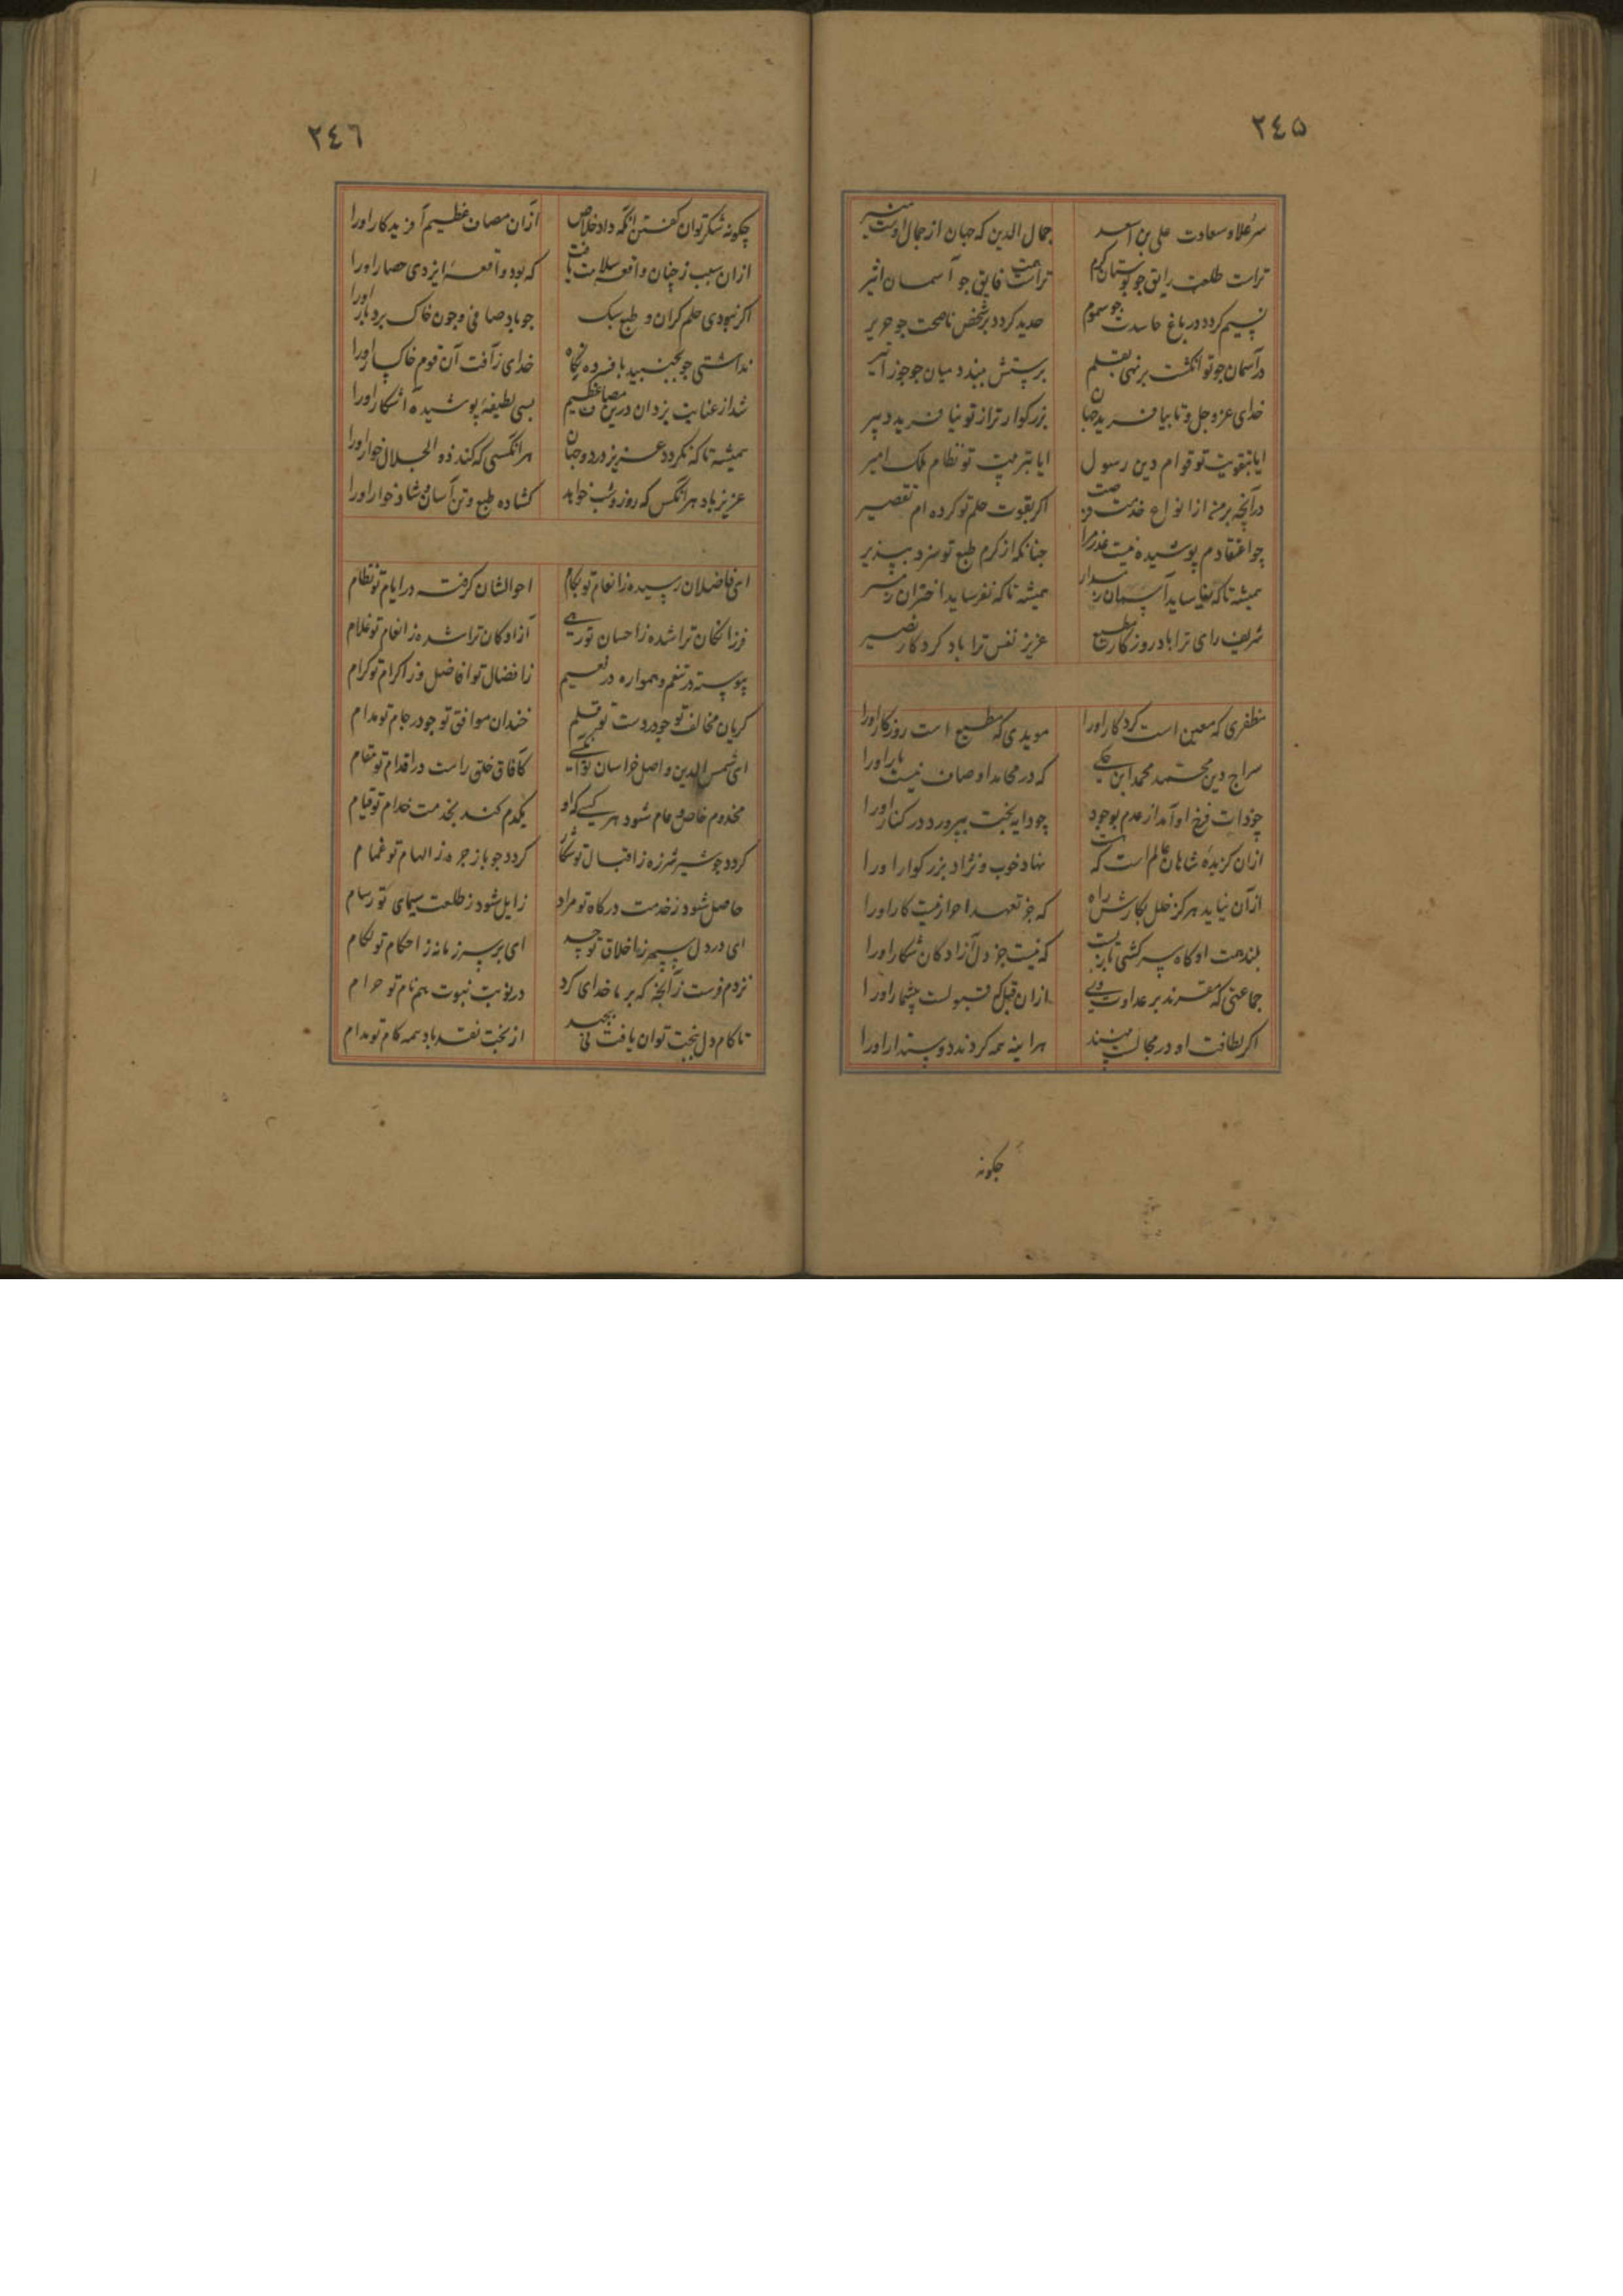 ٢٤٥
سر علا و سعادت علی بن اسعد جمال الدین که جهان از جمال اوست منیر
تراست طلعت رایق جو بوستان کرم تراست همت فایق جو آسمان اثیر
نسیم کردد در باغ حاسدت جو سموم حدید کردد بر شخص ناصحت جو حریر
در آسمان جو تو انکشت بر نهی بقلم برستش ببندد میان جو جوزا تیر
خدای عزه جل و تا بیافرید جهان بزرکوارتر از تو نیافرید دبیر
ایا بتقویت تو قوام دین رسول ایا بتربیت تو نظام ملک امیر
در آنچه بر منی از انواع خدمت فرصت اکر بقوت حلم تو کرده ام تقصیر
چو اعتقادم پوشیده نیست عذر مرا جنانکه از کرم طبع تو سزد بپذیر
همیشه تا که نیاساید آسمان ز مدار همیشه تا که نفرساید اختران ز مسیر
شریف رای ترا باد روزکار مطیع عزیز نفس ترا باد کردکار نصیر
مظفری که معین است کردکار اورا مویدی که مطیع است روزکار اورا
سراج دین محمد محمد ابن علی که در محامد اوصاف نیست یار اورا
چو ذات فرخ او آمد از عدم بوجود چو دایه بخت بپرورد در کنار اورا
ازان کزیدهٔ شاهان عالم است که هست نهاد خوب و نژاد بزرکوار اورا
از آن نیاید هرکز خلل بکارش راه که جز تعهد احرار نیست کار اورا
بلند همت او کاه سرکشی بازیست که نیست جز دل آزادکان شکار اورا
جماعتی که مقرند بر عداوت وی ازان قبل که قبولست بیشمار اورا
اکر لطافت او در مجالست بینند هراینه همه کردند دوستدار اورا
جکونه
٢٤٦
جکونه شکر توان کفتن انکه داد خلاص ازان مصاف عظیم آفریدکار اورا
ازان سبب ز چنان واقعه سلامت یافت که بود واقعهٔ ایزدی حصار اورا
اکر نبودی حلم کران و طبع سبک جو باد صافی و جون خاک بردبار اورا
نداشتی جو بجنبید بافسرده نکاه خدای ز آفت آن قوم خاکسار اورا
شد از عنایت یزدان درین مصاف عظیم بسی لطیفهٔ پوشیده آشکار اورا
همیشه تا که نکردد عزیز در دو جهان هرانکسی که کند ذو الجلال خوار اورا
عزیز باد هرانکس که روز و شب خواهد کشاده طبع و تن آسان و شادخوار اورا
ای فاضلان رسیده ز انعام تو بکام احوالشان کرفته در ایام تو نظام
فرزانکان ترا شده ز احسان تو رهی آزادکان ترا شده ز انعام تو غلام
پیوسته در تنعم و همواره در نعیم ز افضال تو افاضل وز اکرام تو کرام
کریان مخالف تو جو در دست تو قلم خندان موافق تو جو در جام تو مدام
ای شمس الدین و اصل خراسان توئی کآفاق خلق راست در اقدام تو مقام
مخدوم خاص و عام شود هر کسی که او یکدم کند بخدمت خدام تو قیام
کردد جو شیر شرزه ز اقبال تو شکار کردد جو باز جره ز الهام تو حمام
حاصل شود ز خدمت درکاه تو مراد زایل شود ز طلعت سیمای تو رسام
ای در دل سپهر ز اخلاق تو حسد ای بر سر زمانه ز احکام تو لکام
نزدم فرست ز آنچه که بر ما خدای کرد در نوبت نبوت هم نام تو حرام
تا کام دل ببخت توان یافت بی بجهد از بخت نقد باد همه کام تو مدام